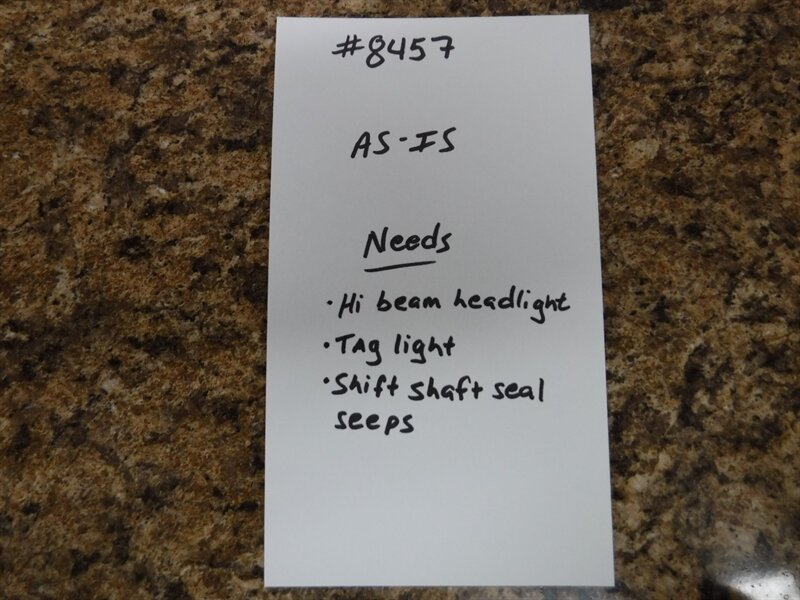 #8457
AS-IS
Needs
· Hi beam headlight
· TAg light
· Shift shaft seal
seeps